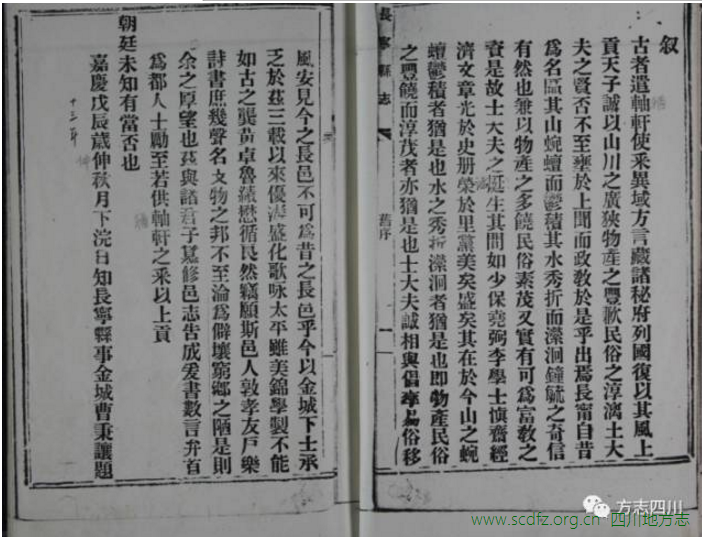 叙
古者遣軸軒使采異域方言藏諸秘府列國復以其風上
貢天子誠以山川之廣狹物產之豐歉民俗之淳漓士大
夫之賢否不至壅於上聞而政教於是乎出焉長甯自昔
為名區其山蜿蟺而鬱積其水秀折而瀠洄鐘毓之奇信
有然也兼以物產之多饒民俗素茂又實有可為富教之
資是故士大夫之挺生其間如少保堯弼李學士慎齋經
濟文章光於史册榮於里黨美矣盛矣其在於今山之蜿
蟺鬱積者猶是也水之秀折瀠洄者猶是也即物產民俗
之豐饒而淳茂者亦猶是也士大夫誠相與倡率易俗移
長寧縣志
舊序
一
風安見今之長邑不可為昔之長邑乎今以金城下士承
乏於茲三載以來優游盛化歌咏太平雖美錦學製不能
如古之龔黃卓魯績懋循良然竊願斯邑人敦孝友戶樂
詩書庶幾聲名文物之邦不至淪為僻壤窮鄉之陋是則
余之厚望也茲與諸君子纂修邑志告成爰書數言弁首
為都人士勵至若供軸軒之采以上貢
朝廷未知有當否也
嘉慶戊辰歲仲秋月下浣日知長寧縣事金城曹秉讓題
十三年
方志四川
www.scdfz.org.cn 四川地方志